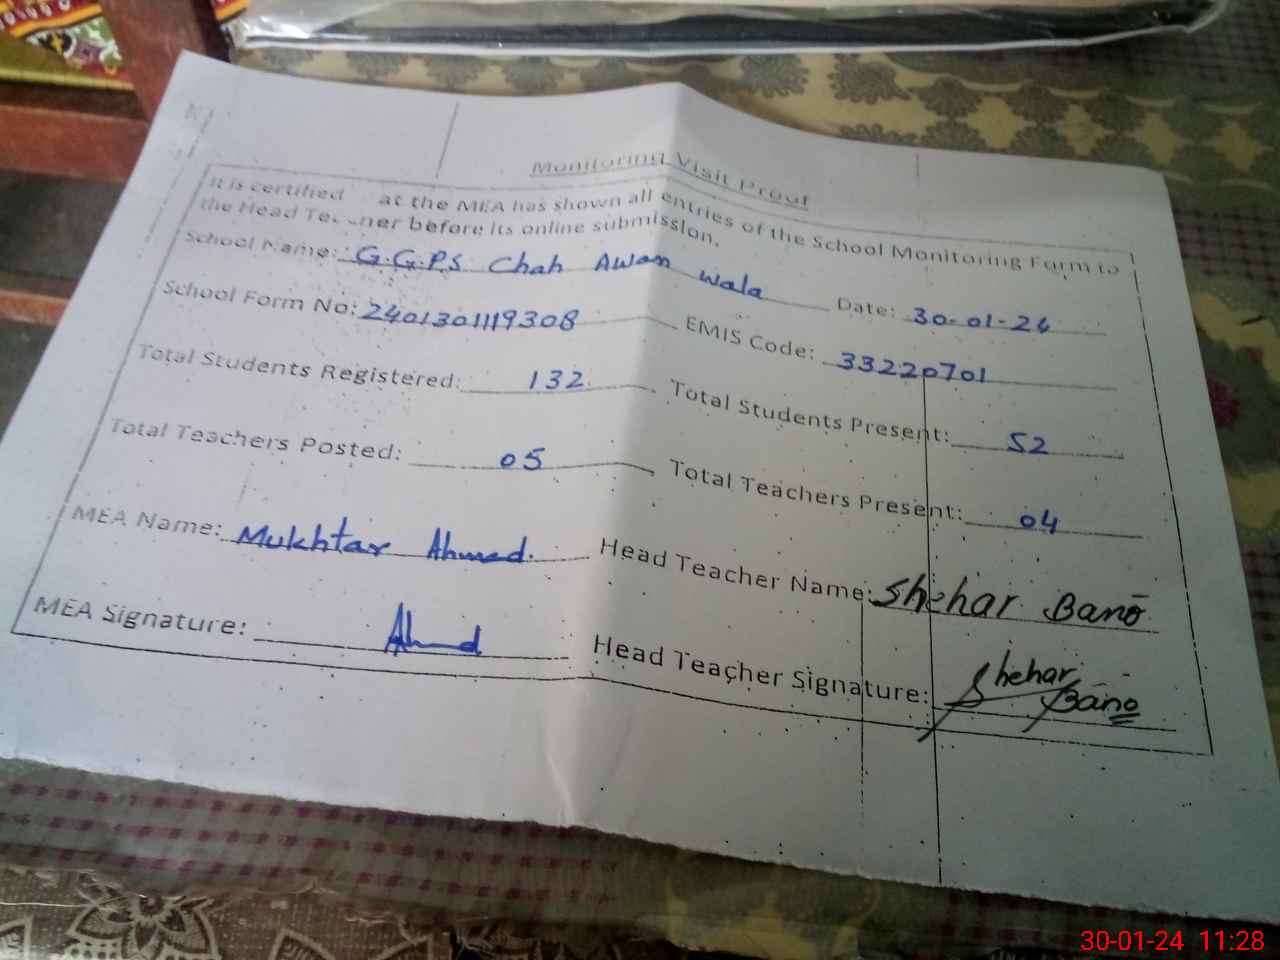 Monitoring Visit Proof
It is certified at the MEA has shown all entries of the School Monitoring Form to
the Head before its online submission.
School Name: G.G.P.S Chah Awan Wala Date: 30-01-24
School Form No: 2401301119308 EMIS Code: 33220701
Total Students Registered: 132 Total Students Present: 52
Total Teachers Posted: 05 Total Teachers Present: 04
MEA Name: Mukhtar Ahmed. Head Teacher Name: Shehar Bano
MEA Signature: Ahmd Head Teacher Signature: Shehar
Bano
30-01-24 11:28